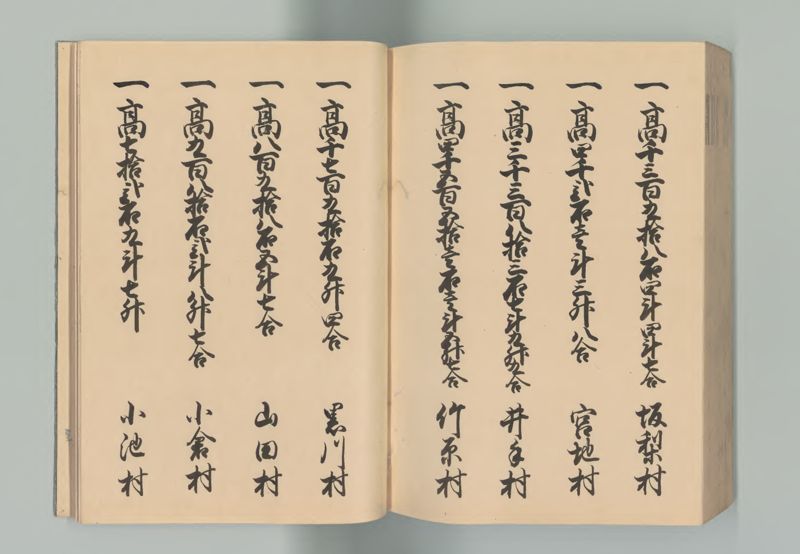 一高千三百九拾八石四斗四升七合 坂梨村
一高四千弐石壱斗三升八合 宮地村
一高三千三百八拾三石七斗九升九合 井手村
一高四千五百五拾壱石壱斗五升七合 竹原村
一高千七百九拾石九升四合 黒川村
一高八百九拾八石五斗七合 山田村
一高九百八拾石弐斗八升七合 小倉村
一高七拾弐石九斗七升 小池村